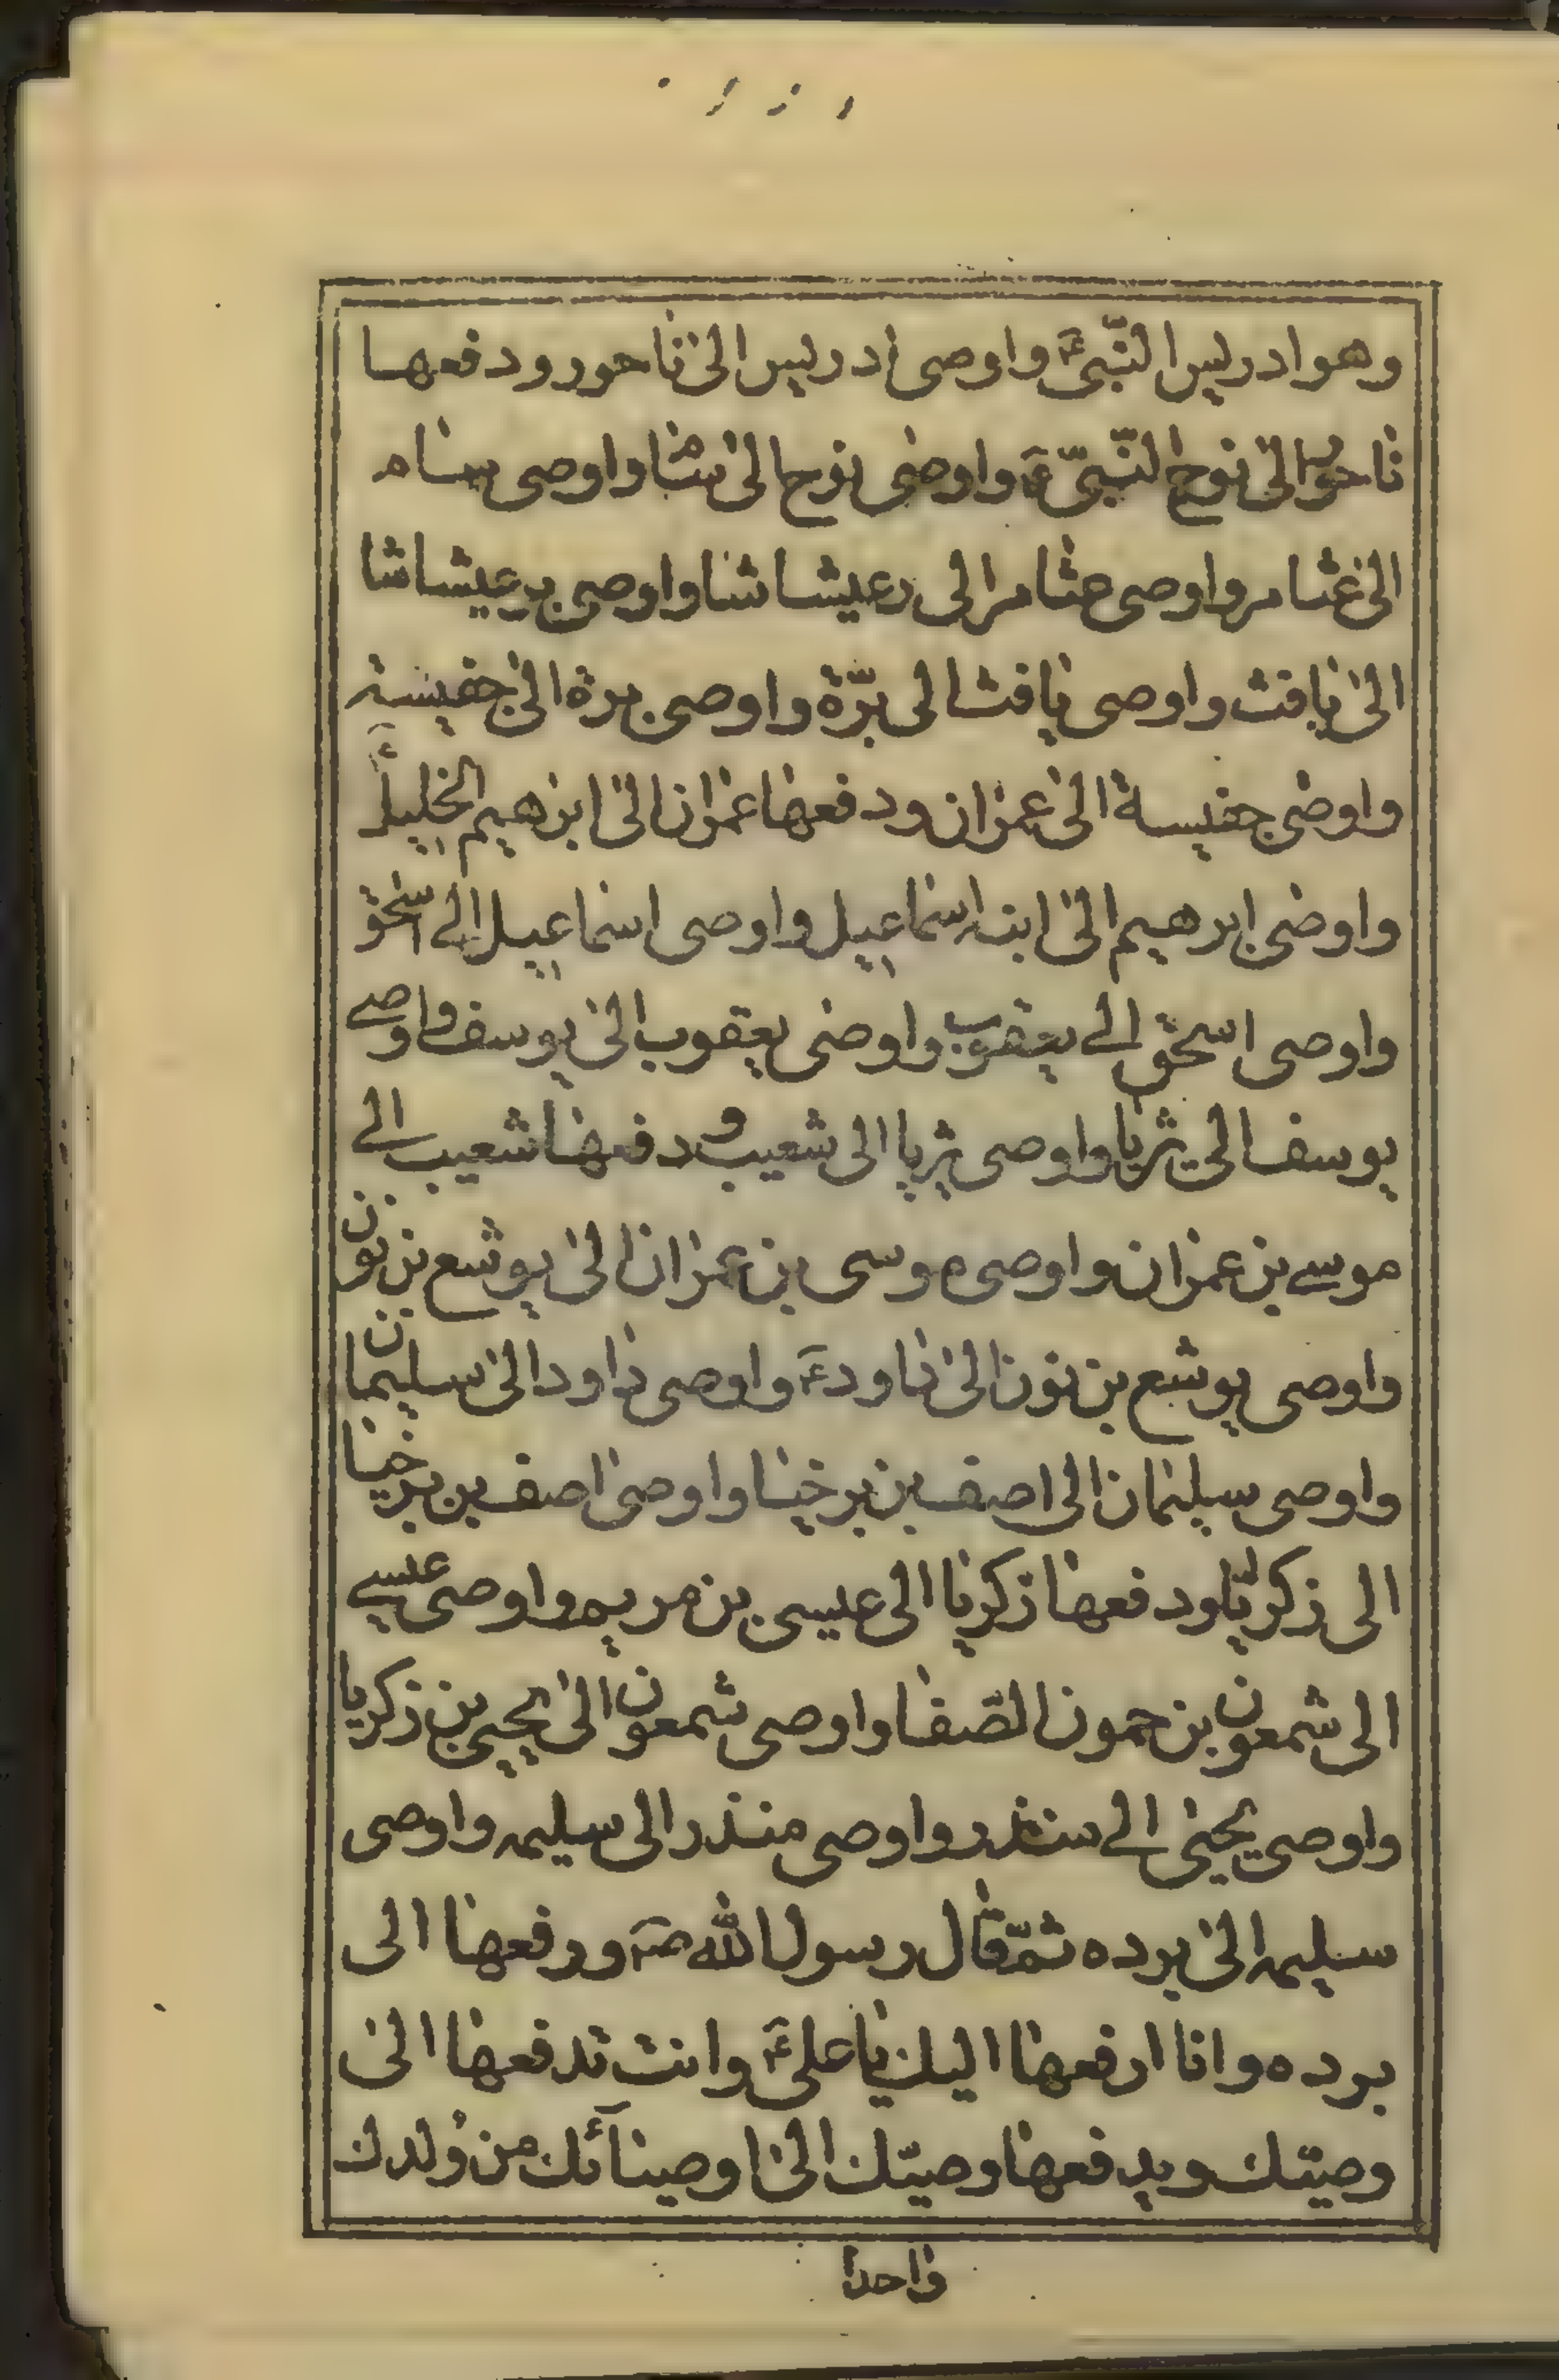 وهو ادريس النّبىّ ع واوصى ادريس الى ناحور ودفعها
ناحور الى نوح النّبىّ ع واوصى نوح الى سام واوصى سام
الى عثامر واوصى عثامر الى رعيشاشا واوصى برعيشاشا
الى يافث واوصى يافث الى برّة واوصى برة الى جفيسة
واوصى جفيسة الى عمران ودفعها عمران الى ابرهيم الخليل ع
واوصى ابرهيم الى ابنه اسماعيل واوصى اسماعيل الى اسحق
واوصى اسحق الى يعقوب واوصى يعقوب الى يوسف واوصى
يوسف الى يثريا واوصى يثريا الى شعيب ودفعها شعيب الى
موسى بن عمران واوصى موسى بن عمران الى يوشع بن نون
واوصى يوشع بن نون الى داود ع واوصى داود الى سليمان
واوصى سليمان الى اصف بن برخيا واوصى اصف بن برخيا
الى زكريّا ودفعها زكريا الى عيسى بن مريم واوصى عيسى
الى شمعون بن حمون الصّفا واوصى شمعون الى يحيى بن زكريا
واوصى يحيى الى منذر واوصى منذر الى سليمه واوصى
سليمه الى برده ثمّ قال رسول الله ص ودفعها الى
برده وانا ادفعها اليك يا على ع وانت تدفعها الى
وصيّك ويدفعها وصيّك الى اوصيآئك من وُلدك
واحدا